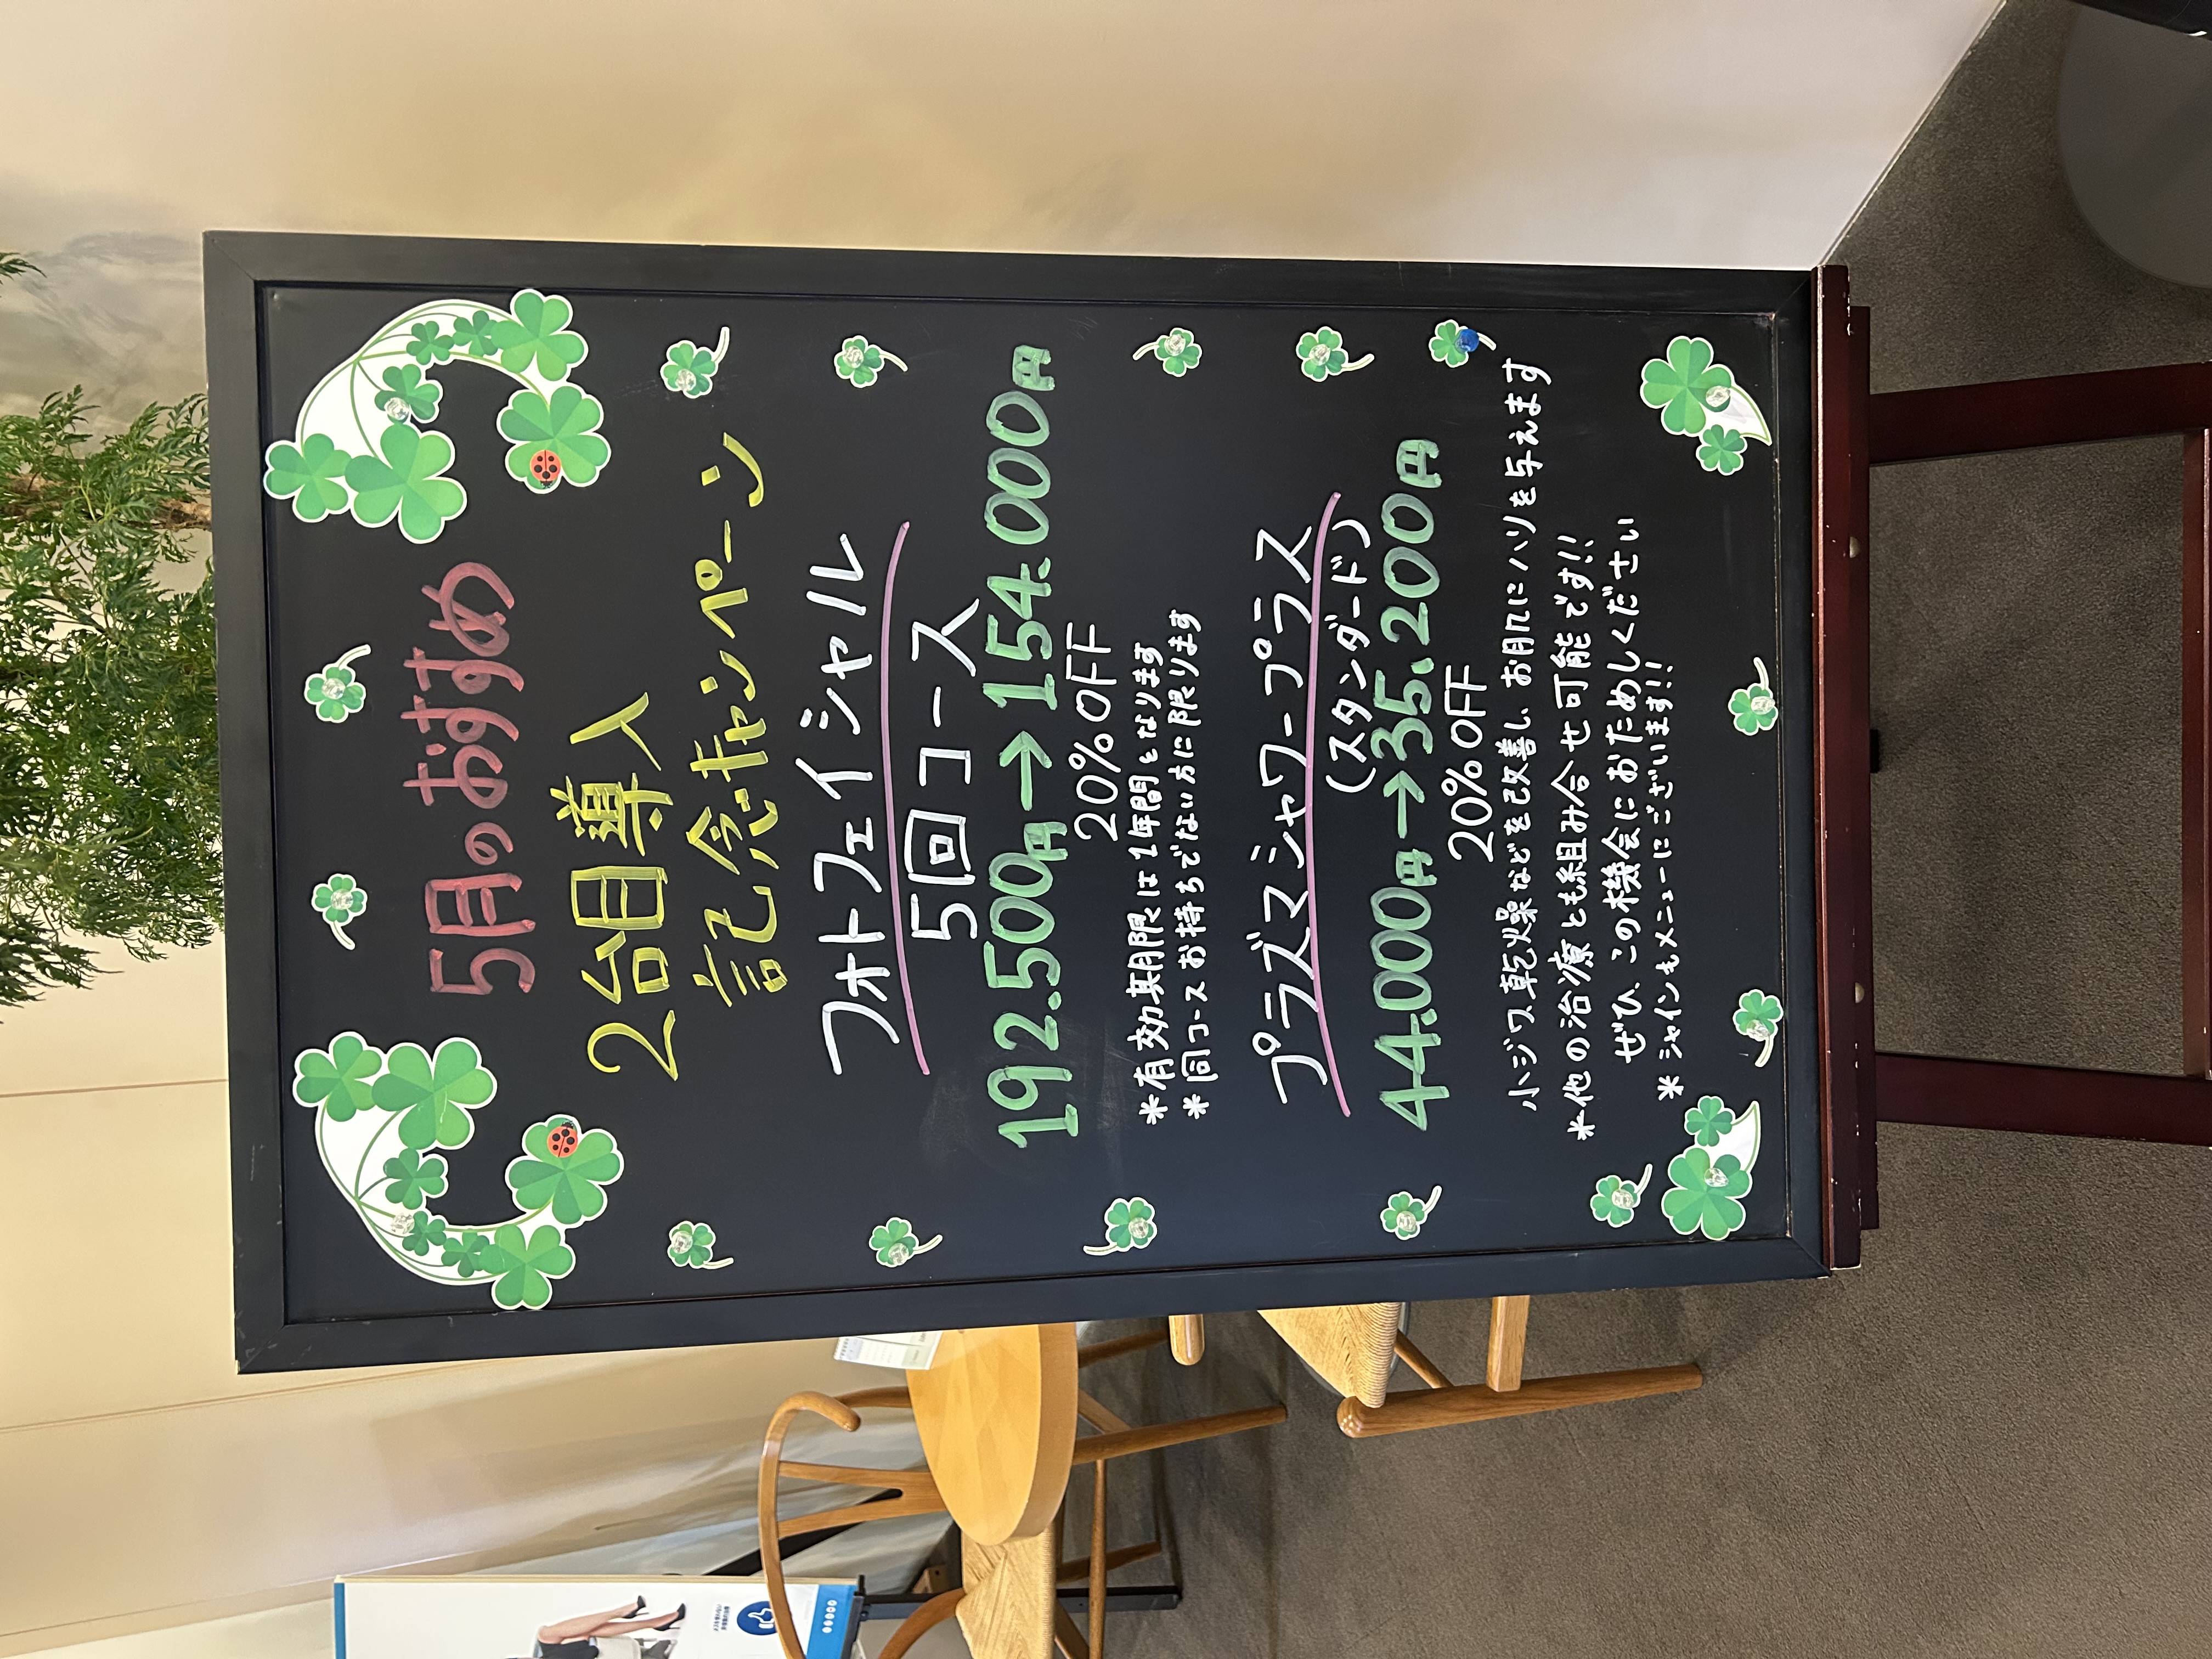 5月のおすすめ
2台目導入
記念キャンペーン
フォトフェイシャル
5回コース
192.500円→154.000円
20%OFF
*有効期限は1年間となります
*同コースお持ちでない方に限ります
プラズマシャワープラス
(スタンダード)
44.000円→35.200円
20%OFF
小ジワ、乾燥などを改善し、お肌にハリを与えます
*他の治療とも組み合せ可能です!!
ぜひ、この機会におためしください
*シャインもメニューにございます!!